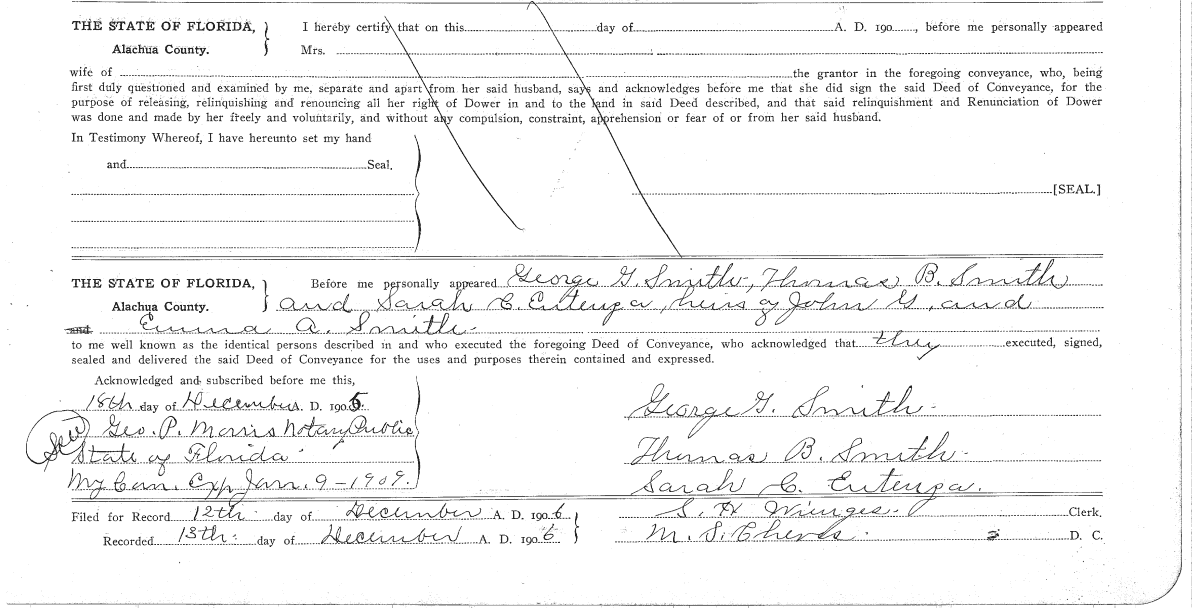 THE STATE OF FLORIDA, I hereby certify that on this day of A. D. 190, before me personally appeared
Alachua County. Mrs.
wife of the grantor in the foregoing conveyance, who, being
first duly questioned and examined by me, separate and apart from her said husband, says and acknowledges before me that she did sign the said Deed of Conveyance, for the
purpose of releasing, relinquishing and renouncing all her right of Dower in and to the land in said Deed described, and that said relinquishment and Renunciation of Dower
was done and made by her freely and voluntarily, and without any compulsion, constraint, apprehension or fear of or from her said husband.
In Testimony Whereof, I have hereunto set my hand
and Seal.
[SEAL.]
THE STATE OF FLORIDA, Before me personally appeared George G. Smith, Thomas B. Smith
Alachua County. and Sarah C. Entenza, heirs of John G. and
and Emma A. Smith
to me well known as the identical persons described in and who executed the foregoing Deed of Conveyance, who acknowledged that they executed, signed,
sealed and delivered the said Deed of Conveyance for the uses and purposes therein contained and expressed.
Acknowledged and subscribed before me this,
18th day of December A. D. 1905
Geo. P. Morris Notary Public
State of Florida
My Com. Exp Jan. 9-1909.
George G. Smith
Thomas B. Smith
Sarah C. Entenza.
Filed for Record 12th day of December A. D. 1906 S. H. Wienges Clerk.
Recorded 13th day of December A. D. 1906 M. S. Cheves D. C.